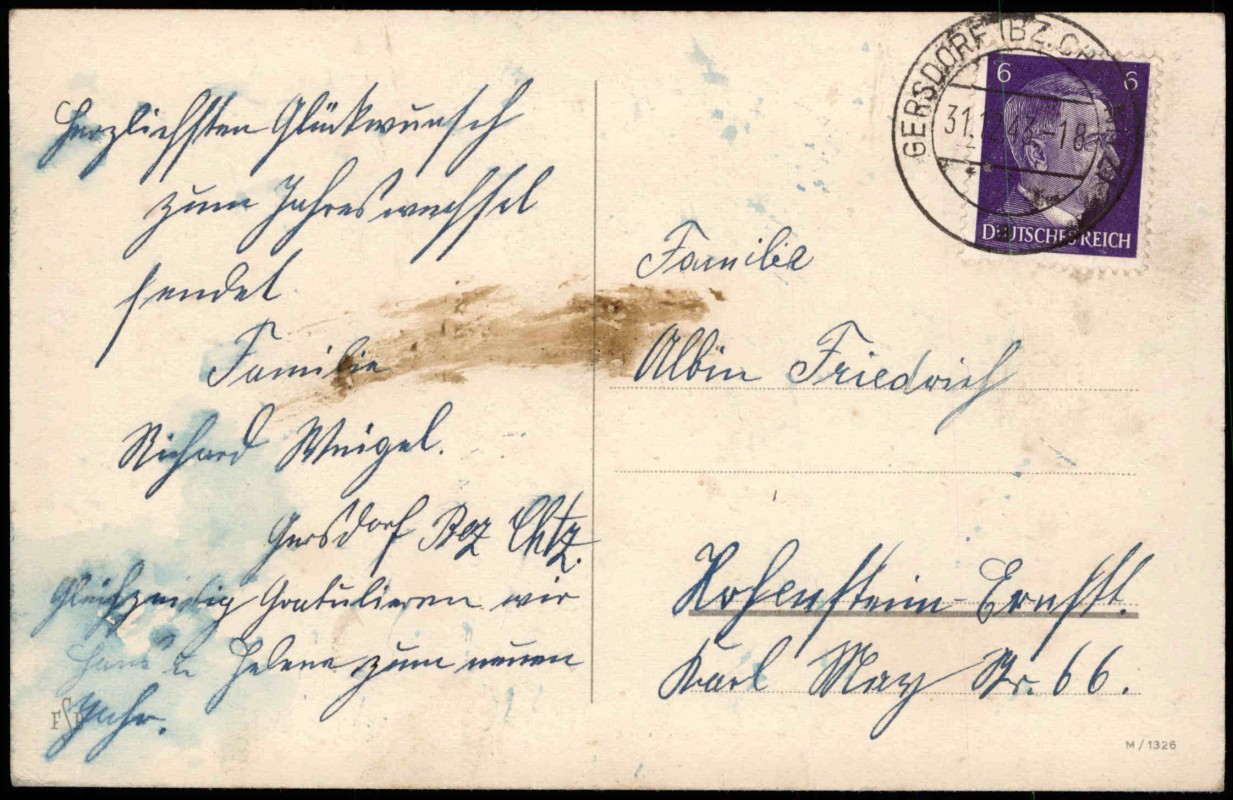 Herzlichsten Glückwunsch
zum Jahreswechsel
sendet
Familie
Richard Weigel.
Gersdorf Bez Chtz.
Gleichzeitig Gratulieren wir
Hans u. Helene zum neuen
Jahr.
GERSDORF (BZ. CH
31.12.43.-18
6 6
DEUTSCHES REICH
Familie
Albin Friedrich
Hohenstein-Ernstt.
Karl May Str. 66.
M/1326